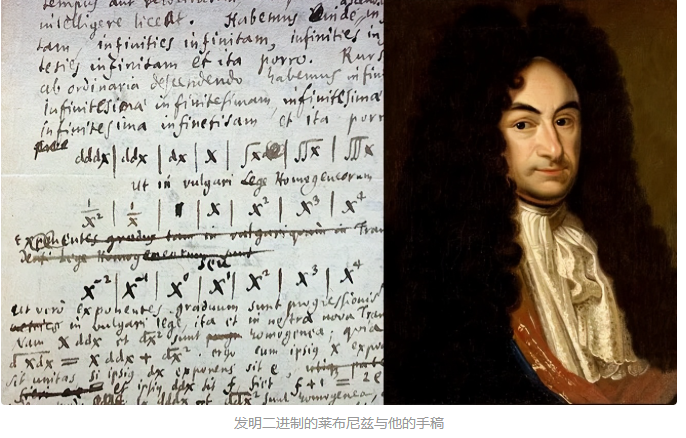 intelligere licebit. Habemus inde in
tam, infinities infinitam, infinities in
infinitam et ita porro. Rurs
ab ordinaria descendendo habemus infini
infinitesima infinitesimam, infinitesima
infinitesima infinitesimam et ita porr
dddx | ddx | dx | x | ∫x | ∫∫x | ∫∫∫x
ut in vulgari Lege Homogeneorum
1/x² | 1/x | 1 | x | x² | x³ | x⁴
Exponentes gradus tam in vulgari quam in Tran
Lege homogeneorum sunt
seu
x⁻² | x⁻¹ | x⁰ | x¹ | x² | x³ | x⁴
ut vero exponentes graduum sunt progressionis
in vulgari lege, ita et in nostra nova Tran
x ddx et dx² sunt homogenea; quia
d xdx = x ddx + dx². ergo cum ipsius x expo
sit unitas, si ipsius dx exponens sit e,
et ipsius ddx sit f, fiet f+1 = 2e
发明二进制的莱布尼兹与他的手稿